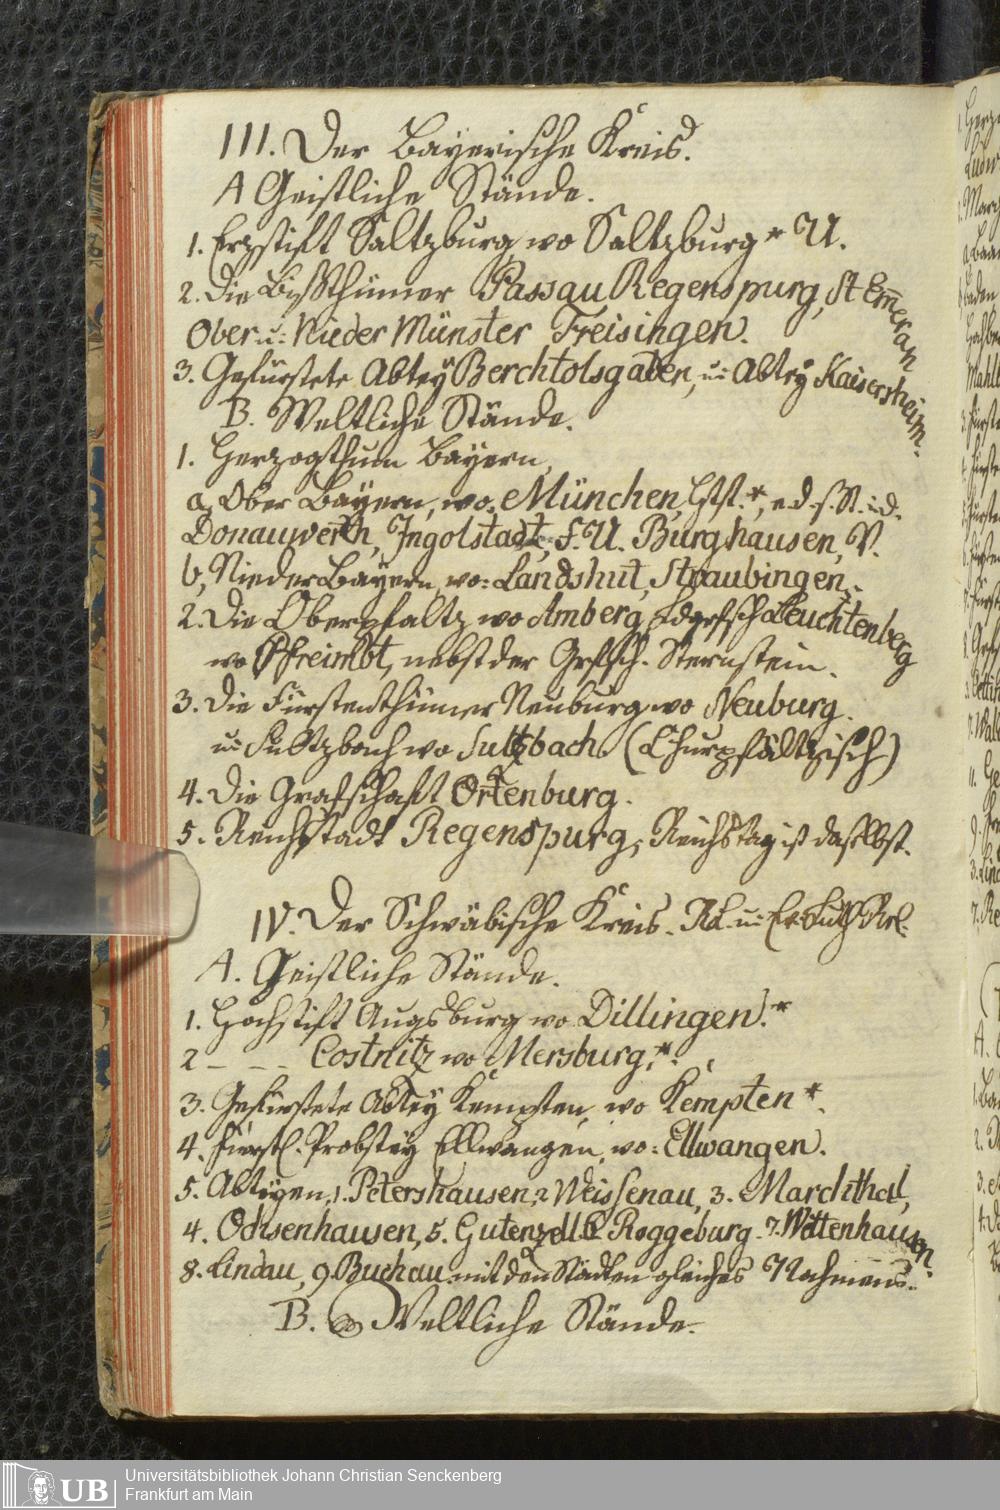 III. Der Bayerische Kreis.
A Geistliche Stände.
1. Erzstift Saltzburg, wo Saltzburg * U.
2. Die Bißthümer Passau Regenspurg, St Em̅eran
Ober u: Nieder Münster Freisingen.
3. Gefürstete Abtey Berchtolsgaben, u: Abtey Kaisersheim.
B. Weltliche Stände.
1. Herzogthum Bayern,
a, Ober Bayern, wo. München,
Donauwerth, Ingolstadt, f. U. Burghausen, V.
b, Nieder Bayern, wo: Landshut, Straubingen,
2. Die Oberpfaltz wo Amberg, Leuchtenberg
wo Pfreimbt, nebst der Grfsch. Sternstein.
3. Die Fürstenthümer Neuburg wo Neuburg.
u: Sultzbach wo Sultzbach. (Churpfältzisch)
4. Die Grafschaft Ortenburg.
5. Reichsstadt Regenspurg, Reichstag ist daselbst.
IV. Der Schwäbische Kreis. u: Ev. Luth Rel.
A. Geistliche Stände.
1. Hochstift Augsburg wo Dillingen. *
2 – – – Costnitz wo Mersburg. *.
3. Gefürstete Abtey Kempten, wo Kempten *.
4. Fürstl. Probstey Ellwangen, wo: Ellwangen.
5. Abteyen, 1. Petershausen, 2 Weissenau, 3. Marchthal,
4. Ochsenhausen, 5. Gutenzell. 6 Roggeburg. 7. Wettenhausen.
8. Lindau, 9. Buchau mit den Städten gleiches Nahmens.
B. Weltliche Stände.
UB
Universitätsbibliothek Johann Christian Senckenberg
Frankfurt am Main